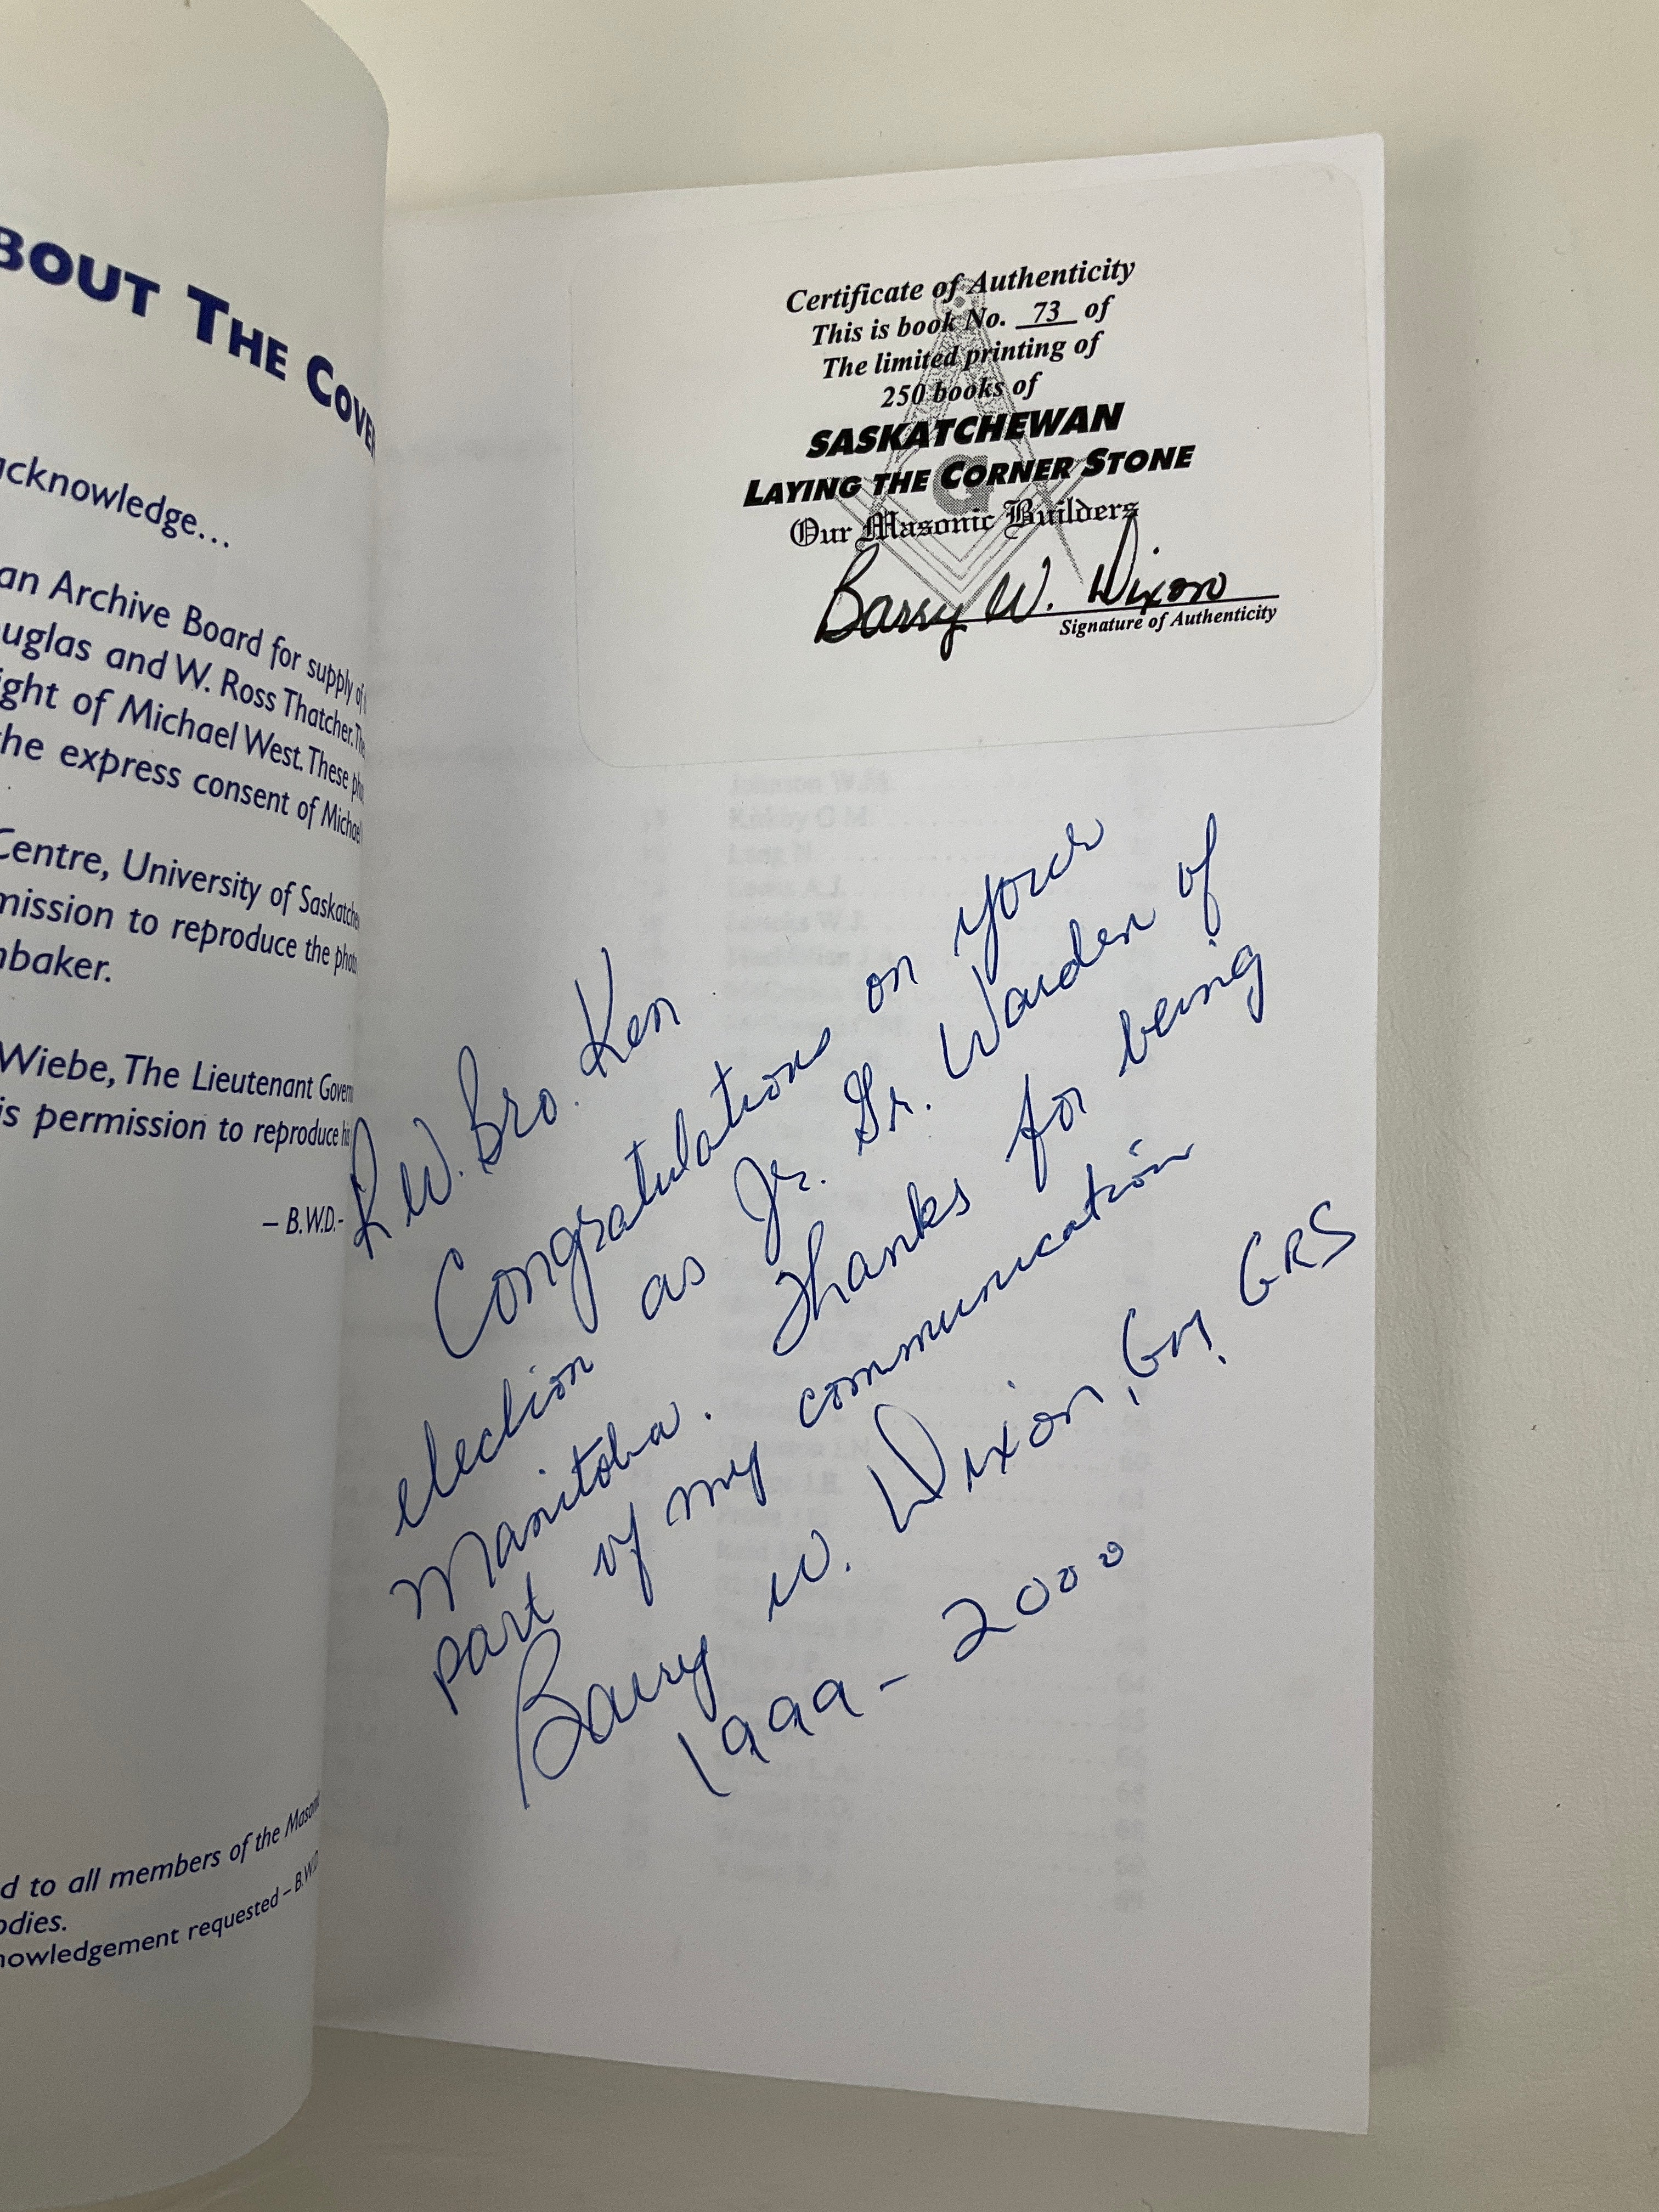 BOUT THE COVE
acknowledge...
an Archive Board for supply of
uglas and W. Ross Thatcher. The
ight of Michael West. These
he express consent of Michael
Centre, University of Saskatche
mission to reproduce the
nbaker.
Wiebe, The Lieutenant Govern
is permission to reproduce
– B.W.D.-
d to all members of the Masonic
odies.
nowledgement requested – B.W.D.
Certificate of Authenticity
This is book No. 73 of
The limited printing of
250 books of
SASKATCHEWAN
LAYING THE CORNER STONE
Our Masonic Builders
Barry W. Dixon
Signature of Authenticity
R.W. Bro. Ken
Congratulations on your
election as Jr. Gr. Warden of
Manitoba. Thanks for being
part of my communication
Barry W. Dixon, GM, GRS
1999 - 2000